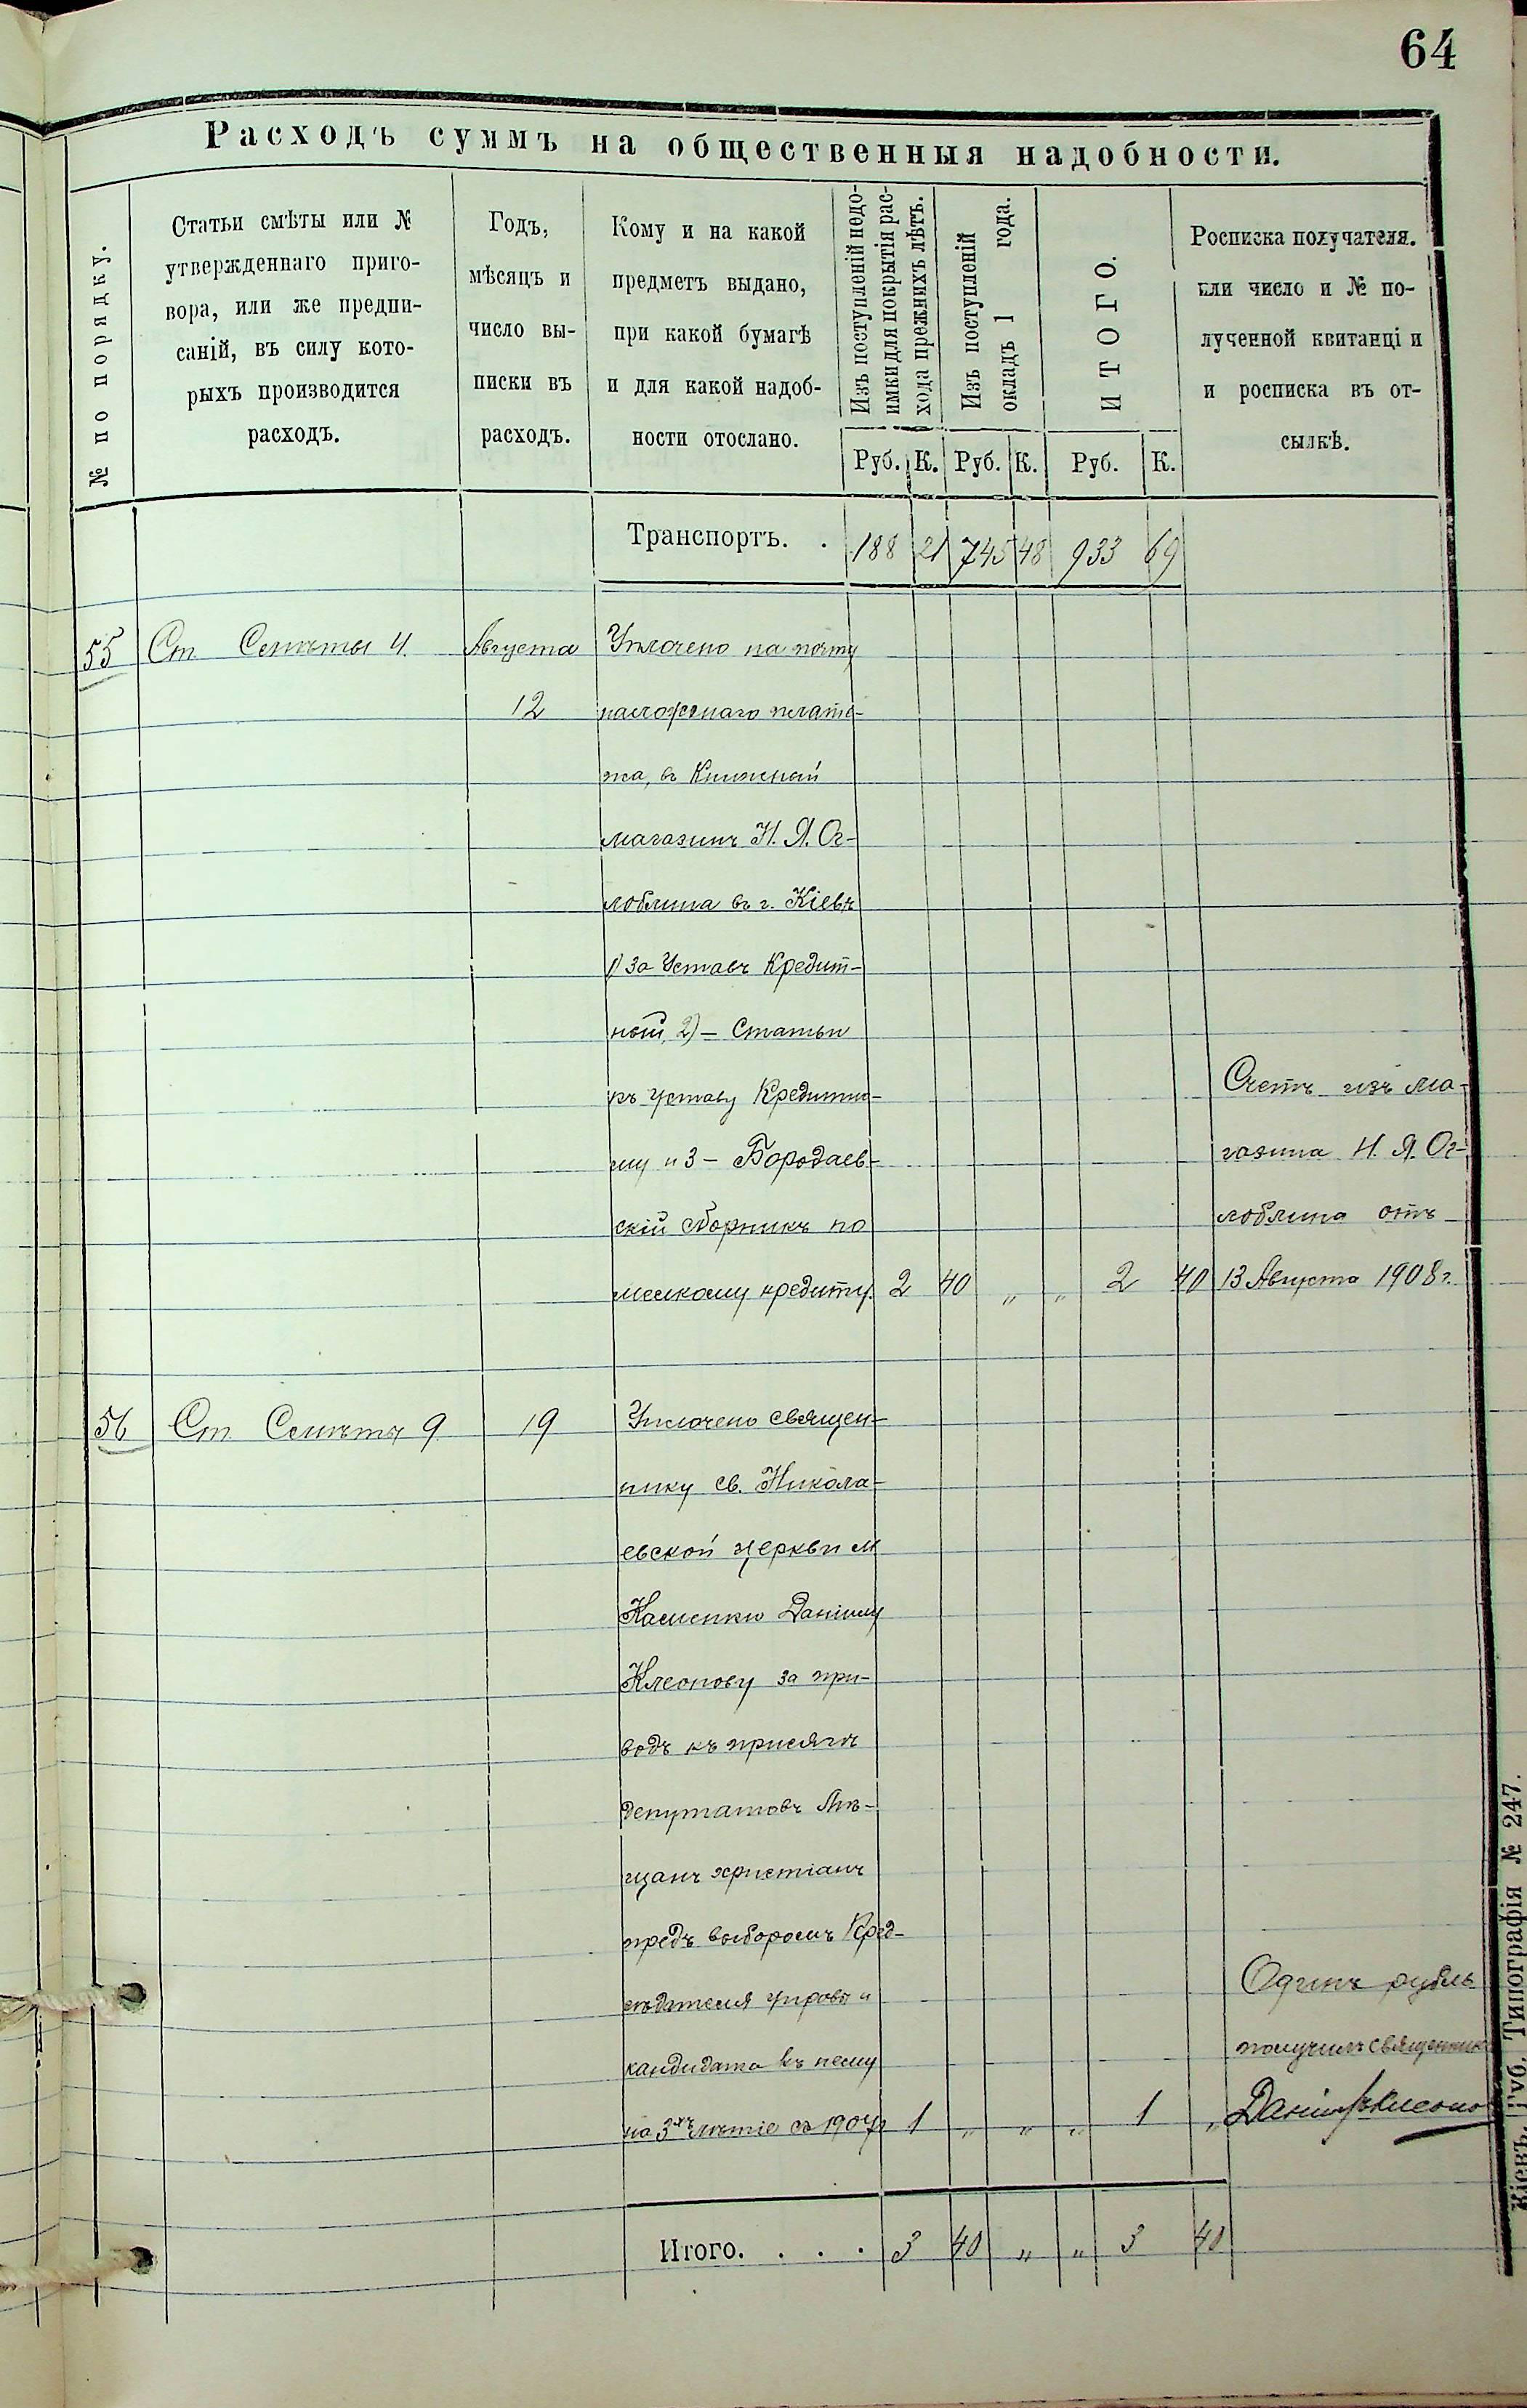 64
Расходъ суммъ на общественныя надобности.
№ по порядку.
Статьи смѣты или №
утвержденнаго приго-
вора, или же предпи-
саній, въ силу кото-
рыхъ производится
расходъ.
Годъ,
мѣсяцъ и
число вы-
писки въ
расходъ.
Кому и на какой
предметъ выдано,
при какой бумагѣ
и для какой надоб-
ности отослано.
Изъ поступленій недо-
имки для покрытія рас-
хода прежнихъ лѣтъ.
Изъ поступленій
окладъ 1 года.
ИТОГО.
Росписка получателя.
или число и № по-
лученной квитанціи
и росписка въ от-
сылкѣ.
Руб. К. Руб. К. Руб. К.
Транспортъ. . 188 21 745 48 933 69
55 Ст. Смѣты 4. Августа Уплочено на почту
12 наложенаго плате-
жа, въ Книжный
магазинъ Н. Я. Ог-
лоблина въ г. Кіевѣ
1) За Уставъ Кредит-
ный, 2) – Статьи
къ уставу Кредитно- Счетъ изъ ма-
му и 3 – Бородаев- газина Н. Я. Ог-
скій сборникъ по лоблина отъ
мелкому кредиту. 2 40 „ „ 2 40 13 Августа 1908 г.
56 Ст. Смѣты 9 19 Уплочено священ-
нику св. Никола-
евской церкви м
Каменки Даніилу
Клеопову за при-
водъ къ присягѣ
депутатовъ Мѣ-
щанъ христіанъ
предъ выборомъ Пред-
сѣдателя управы и Одинъ рубль
кандидата къ нему получилъ священникъ
на 3хъ лѣтіе съ 190 г 1 „ „ „ 1 „ Даніилъ Клеопо
Итого. . . . 3 40 „ „ 3 40
Кіевъ, Губ. Типографія № 247.